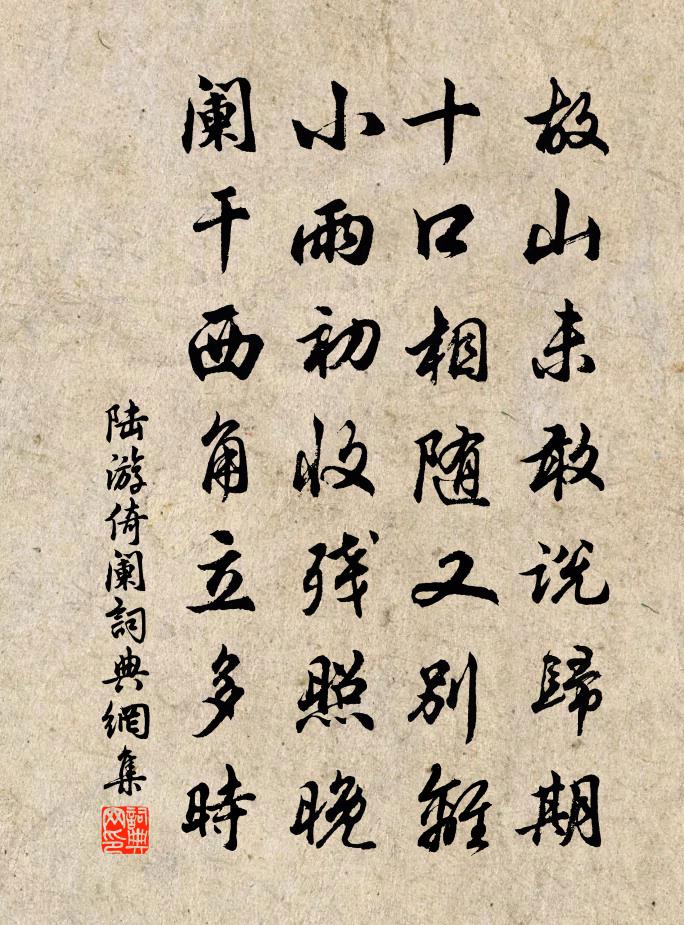 故山未敢说歸期
十口相随又别離
小雨初收残照晚
阑干西角立多時
陆游倚阑詞典網集
詞典网印